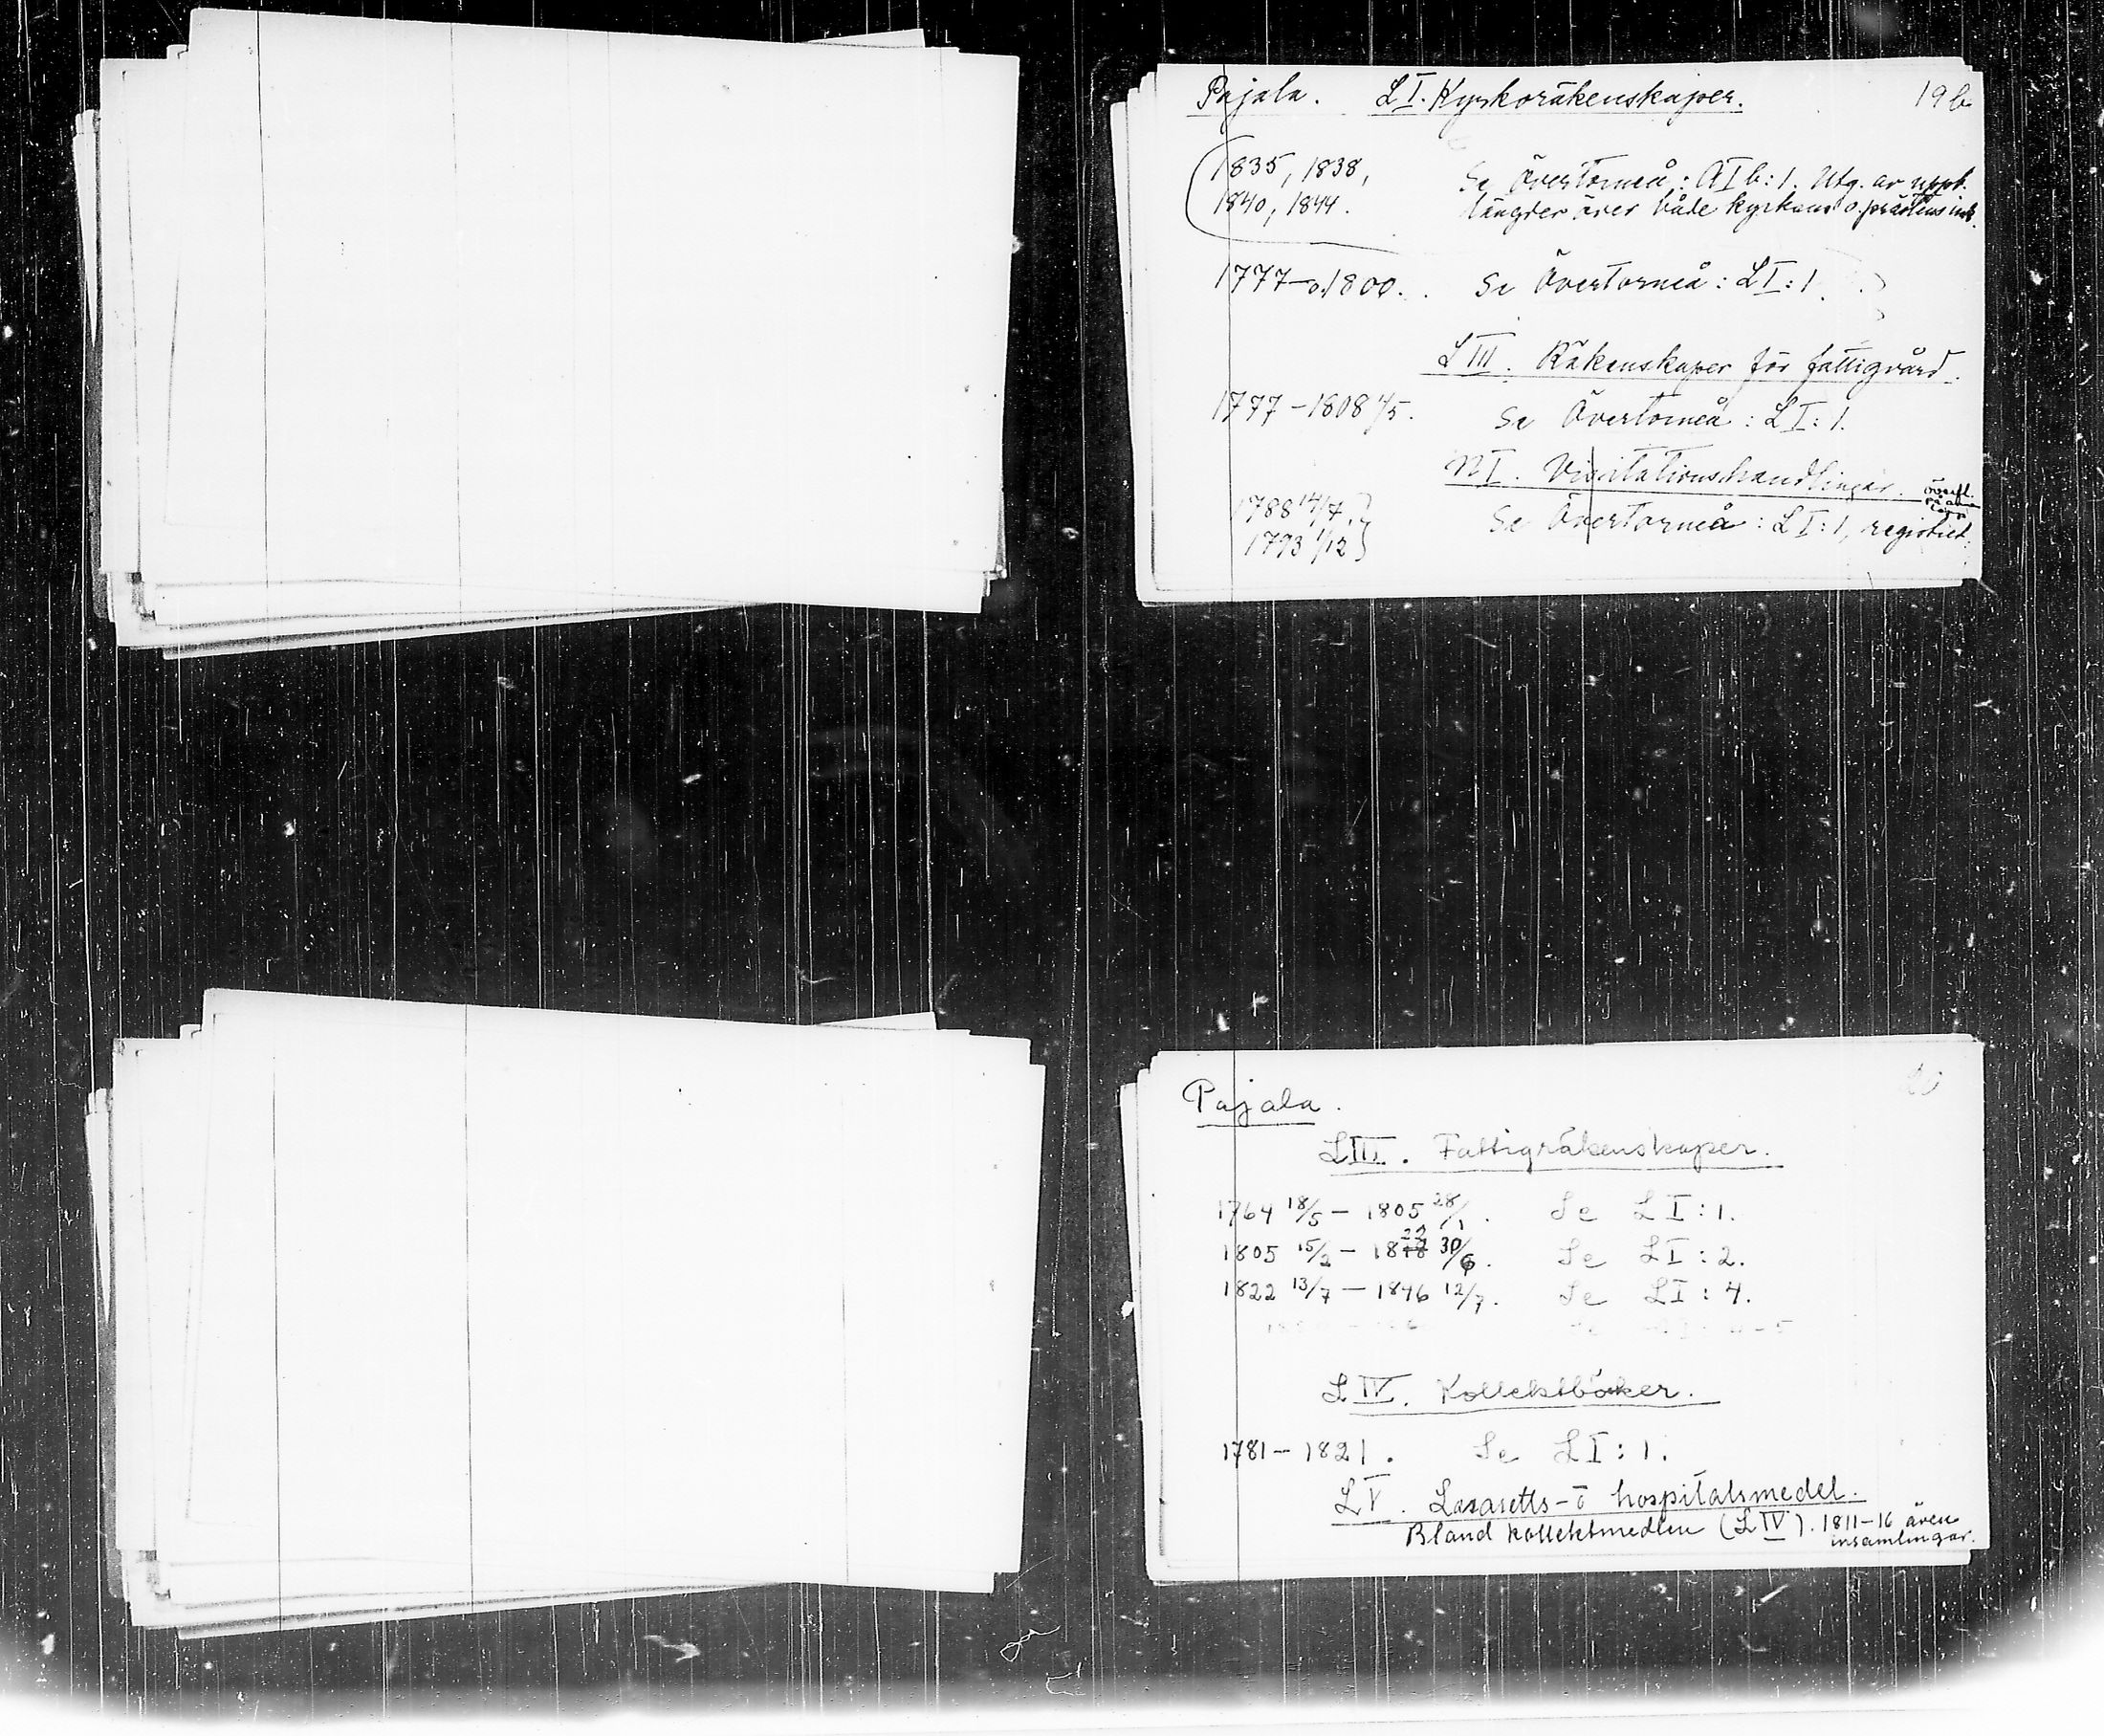 Pajala. L I. Kyrkoräkenskaper. 19 b
1835, 1838, Se Övertorneå: A I b: 1. Utg. av uppb.
1840, 1844. längder över både kyrkans o. prästens ink.
1777–o. 1800. Se Övertorneå: L I: 1.
L III. Räkenskaper för fattigvård.
1777–1808 1/5. Se Övertorneå: L I: 1.
N I. Visitationshandlingar.
1788 14/7,
1793 1/12 Se Övertorneå: L I: 1, registret.
Pajala. 20
L III. Fattigräkenskaper.
1764 18/5 – 1805 28/1. Se L I: 1.
1805 15/2 – 1822 30/6. Se L I: 2.
1822 13/7 – 1846 12/7. Se L I: 4.
L IV. Kollektböcker.
1781–1821. Se L I: 1.
L V. Lasaretts- o hospitalsmedel.
Bland kollektmedlen (L IV). 1811–16 även
insamlingar.